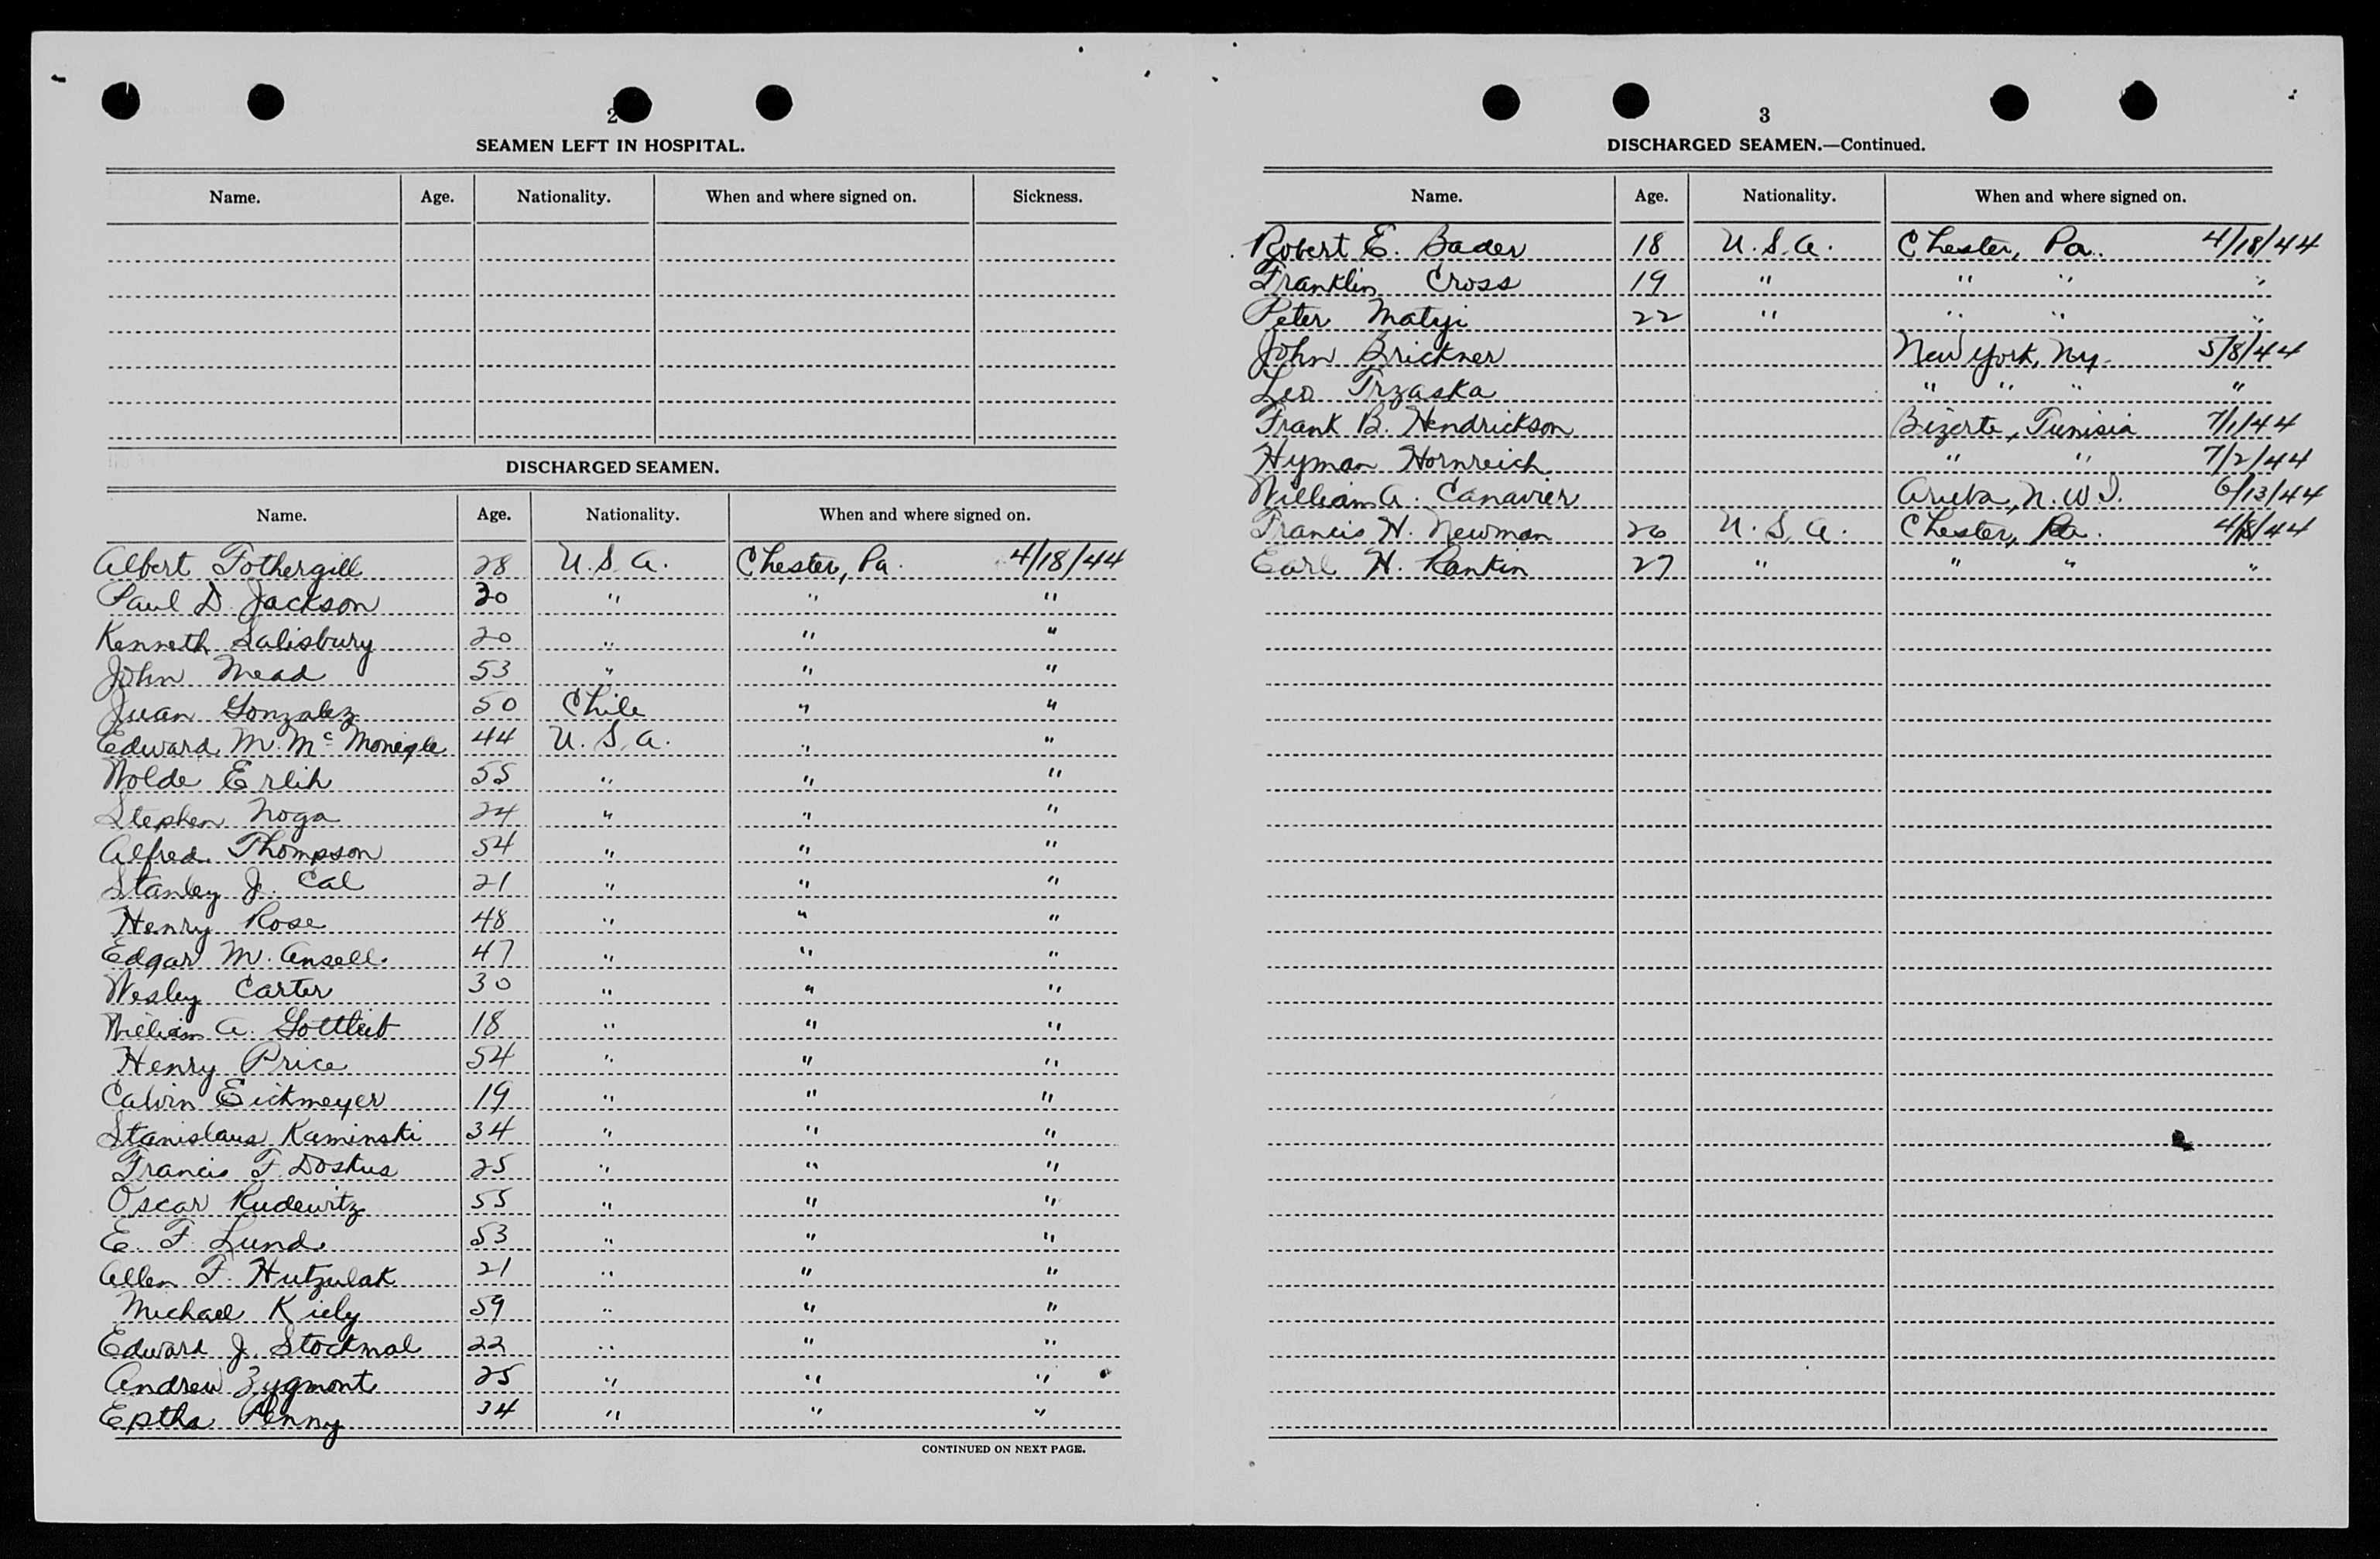 2
SEAMEN LEFT IN HOSPITAL.
Name. Age. Nationality. When and where signed on. Sickness.
DISCHARGED SEAMEN.
Name. Age. Nationality. When and where signed on.
Albert Fothergill 28 U.S.A. Chester, Pa. 4/18/44
Paul D. Jackson 30 " " "
Kenneth Salisbury 20 " " "
John Mead 53 " " "
Juan Gonzalez 50 Chile " "
Edward M. McMonigle 44 U.S.A. " "
Wolde Erlih 55 " " "
Stephen Noga 24 " " "
Alfred Thompson 54 " " "
Stanley J. Cal 21 " " "
Henry Rose 48 " " "
Edgar M. Ansell 47 " " "
Wesley Carter 30 " " "
William A. Gottlieb 18 " " "
Henry Price 54 " " "
Calvin Eickmeyer 19 " " "
Stanislaus Kaminski 34 " " "
Francis F. Doskus 25 " " "
Oscar Rudewitz 55 " " "
E. F. Lund 53 " " "
Allen F. Hutzulak 21 " " "
Michael Kiely 59 " " "
Edward J. Stockmal 22 " " "
Andrew Zygmont 25 " " "
Eptha Penny 34 " " "
CONTINUED ON NEXT PAGE.
3
DISCHARGED SEAMEN.—Continued.
Name. Age. Nationality. When and where signed on.
Robert E. Bader 18 U.S.A. Chester, Pa. 4/18/44
Franklin Cross 19 " " " "
Peter Matyi 22 " " " "
John Brickner New York, Ny. 5/8/44
Leo Trzaska " " " "
Frank B. Hendrickson Bizerte, Tunisia 7/1/44
Hyman Hornreich " " 7/2/44
William A. Canavier Aruba, N.W.I. 6/13/44
Francis H. Newman 26 U.S.A. Chester, Pa. 4/18/44
Earl H. Rankin 27 " " " "